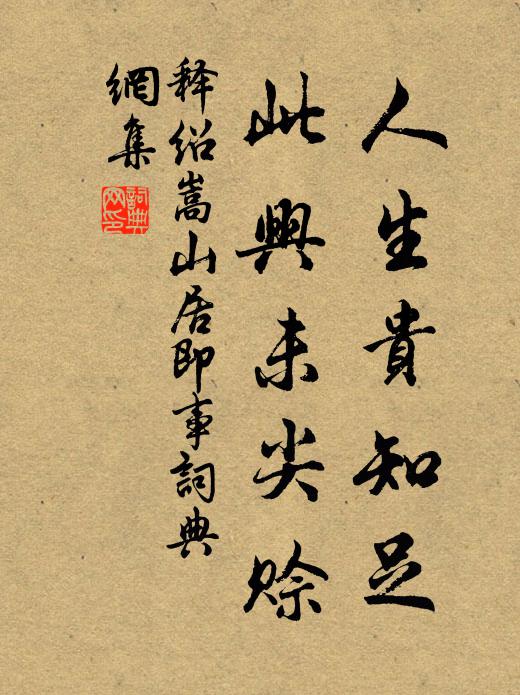 人生貴知足
此興未尖賒
释绍嵩山居即事詞典
網集
詞典網印